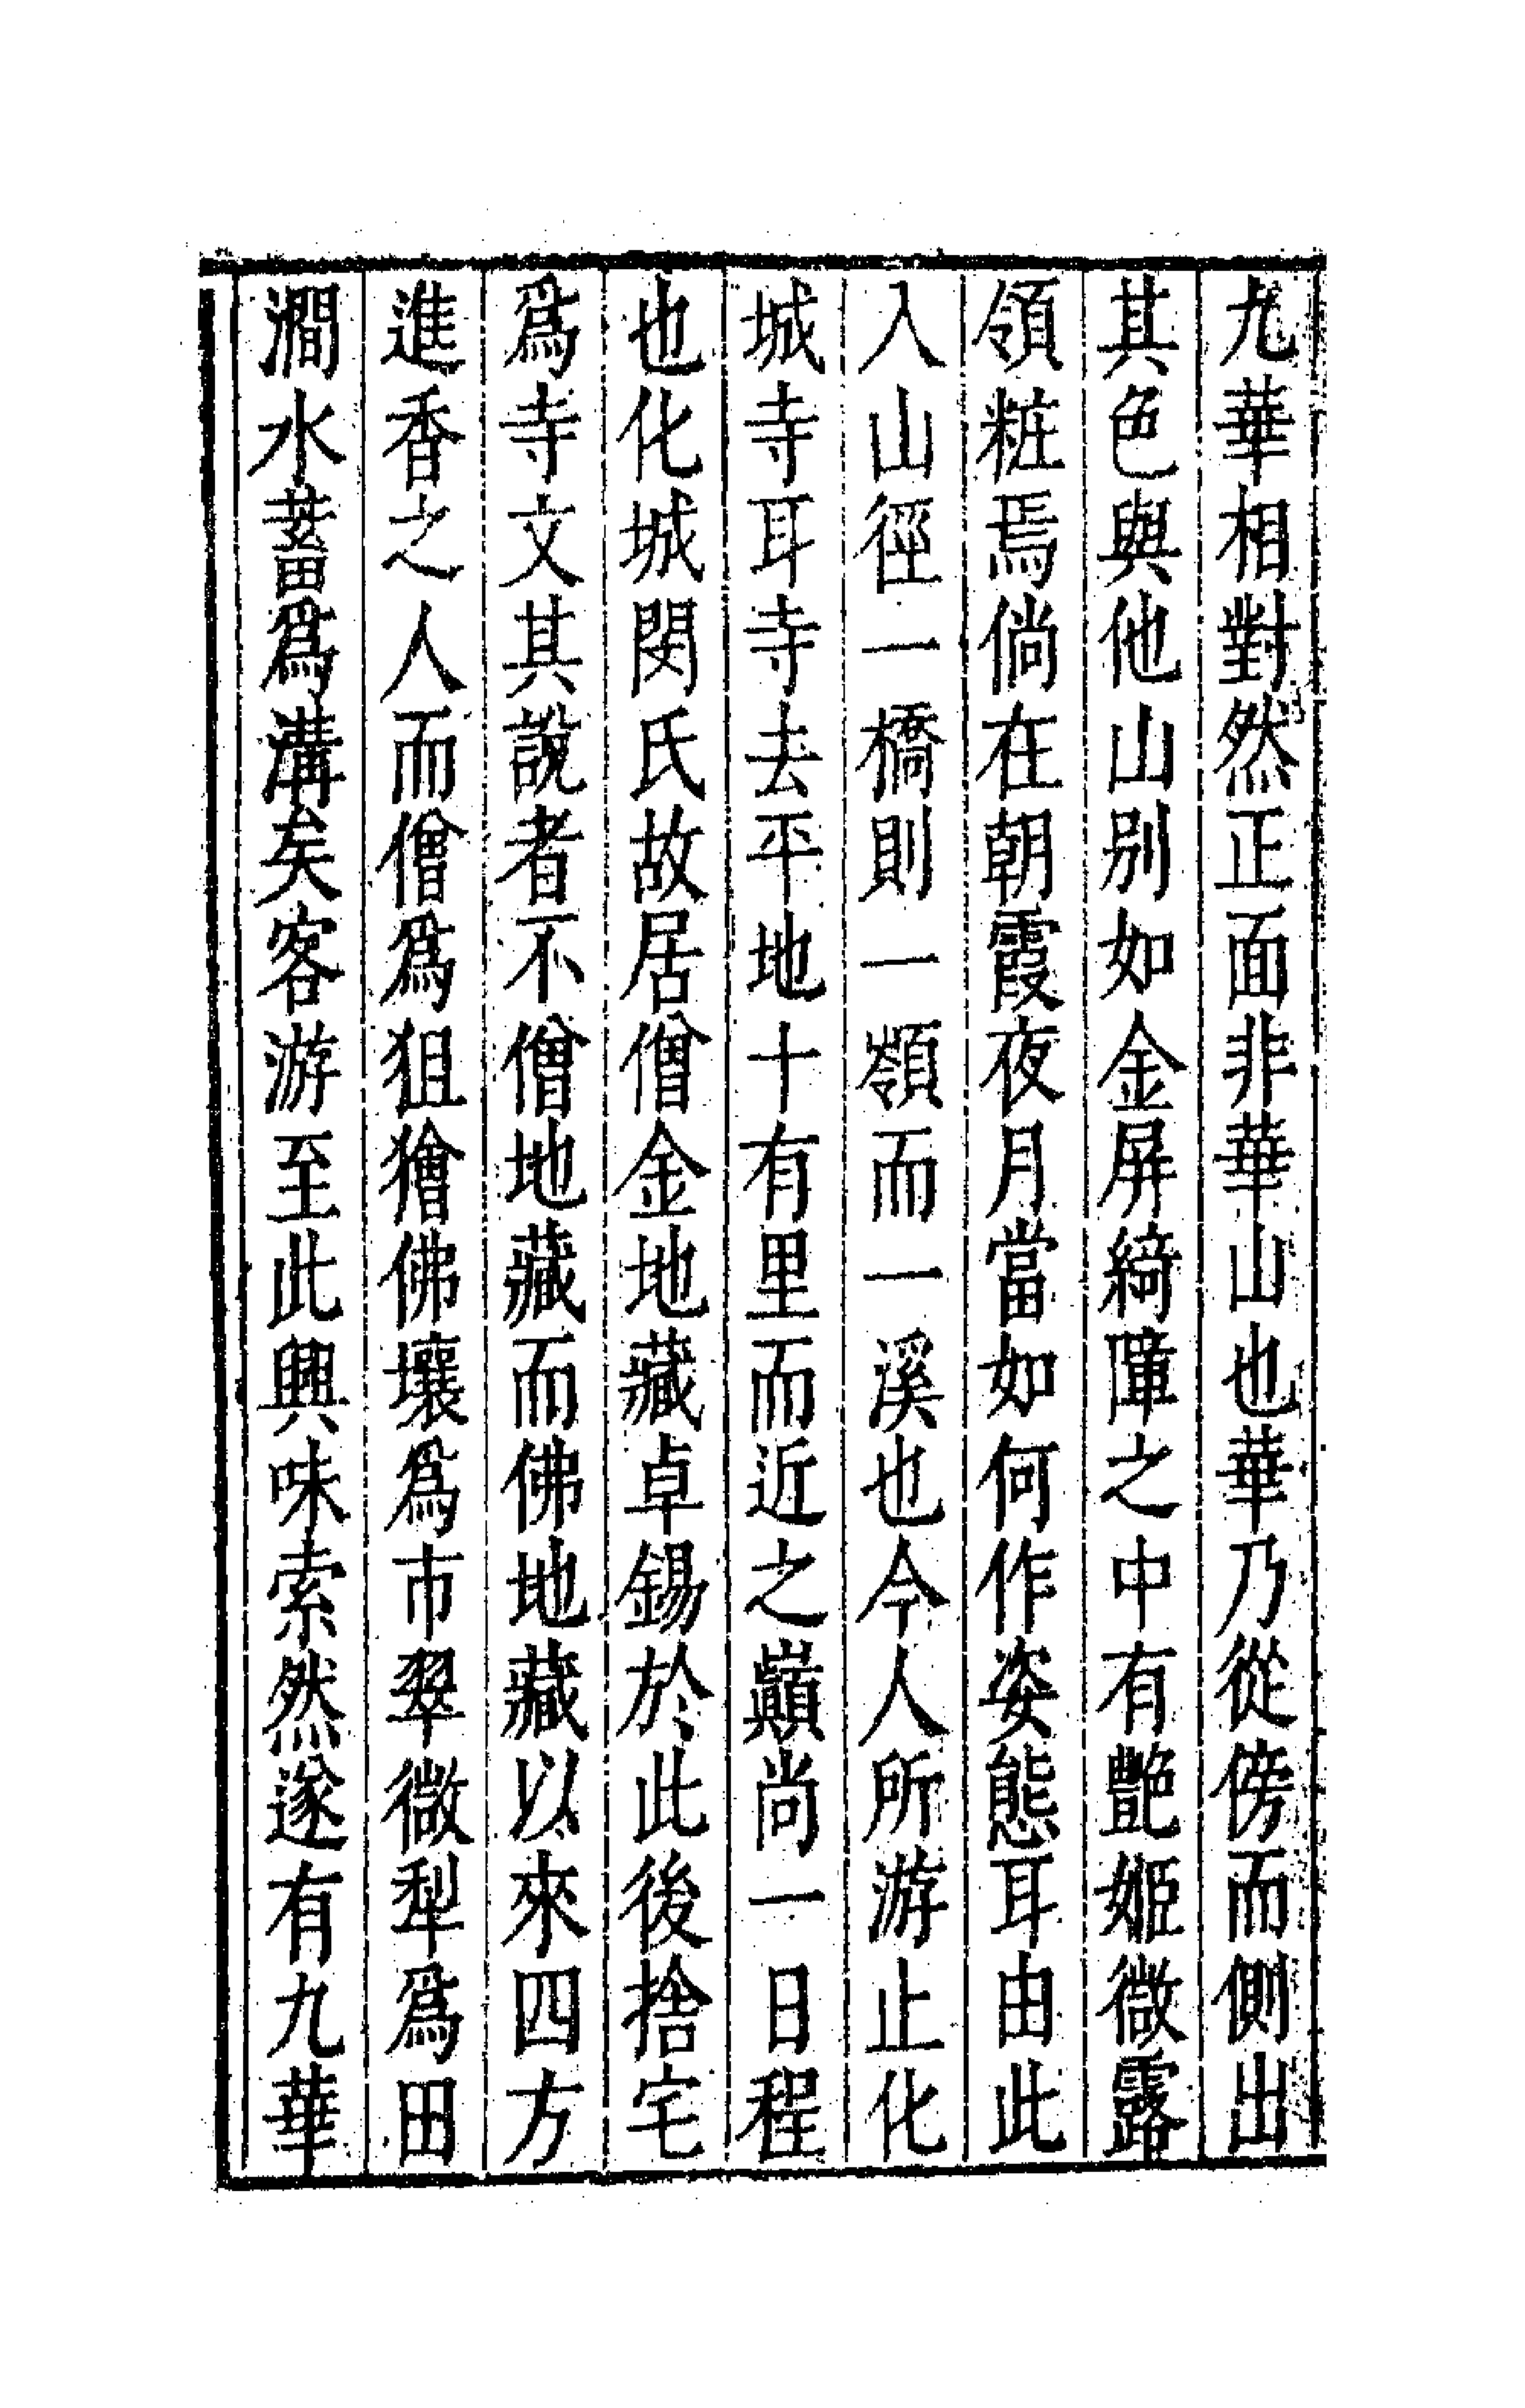 九華相對然正面非華山也華乃從傍而側出
其色與他山別如金屏綺障之中有艷姬微露
領粧焉倘在朝霞夜月當如何作姿態耳由此
入山徑一橋則一嶺而一溪也今人所游止化
城寺耳寺去平地十有里而近之巔尚一日程
也化城閔氏故居僧金地藏卓錫於此後捨宅
爲寺文其說者不僧地藏而佛地藏以來四方
進香之人而僧爲狙獪佛壤爲市翠微犁爲田
澗水蓄爲溝矣客游至此興味索然遂有九華